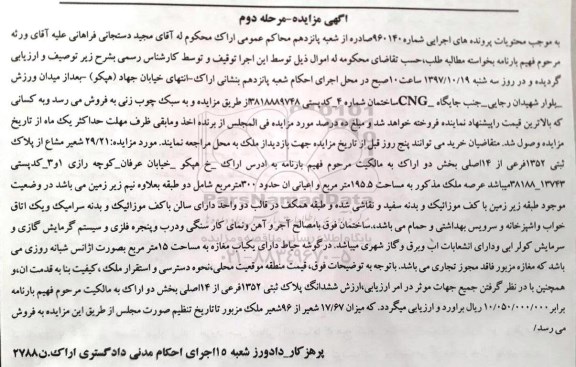 آگهی مزایده-مرحله دوم
به موجب محتویات پرونده های اجرایی شماره ۹۶۰۱۴۰صادره از شعبه پانزدهم محاکم عمومی اراک محکوم له آقای مجید دستجانی فراهانی علیه آقای ورثه
مرحوم فهیم بارنامه بخواسته مطالبه طلب،حسب تقاضای محکومه له اموال ذیل توسط این اجرا توقیف و توسط کارشناس رسمی بشرح زیر توصیف و ارزیابی
گردیده و در روز سه شنبه ۱۳۹۷/۱۰/۱۹ ساعت ۱۰صبح در محل اجرای احکام شعبه پانزدهم بنشانی اراک-انتهای خیابان جهاد (هپکو) -بعداز میدان ورزش
_بلوار شهیدان رجایی_جنب جایگاه _CNGساختمان شماره ۴_کدپستی ۳۸۱۸۸۸۹۷۴۸از طریق مزایده و به سبک چوب زنی به فروش می رسد وبه کسانی
که بالاترین قیمت راپیشنهاد نماینده فروخته خواهد شد.از مبلغ ده درصد مورد مزایده فی المجلس از برنده اخذ ومابقی ظرف مهلت حداکثر یک ماه از تاریخ
مزایده وصول شد. متقاضیان خرید می توانند پنج روز قبل از تاریخ مزایده جهت بازدیداز ملک به محل مراجعه نمایند. مورد مزایده:۲۹/۲۱ شعیر مشاع از پلاک
ثبتی ۱۳۵۲فرعی از ۱۴اصلی بخش دو اراک به مالکیت مرحوم فهیم بارنامه به ادرس اراک _خ هپکو _خیابان عرفان_کوچه رازی ۱و۳_کدپستی
۳۸۱۸۸_۱۳۷۴۳میباشد عرصه ملک مذکور به مساحت ۱۹۵.۵متر مربع و اعیانی ان حدود ۳۰۰مترمربع شامل دو طبقه بعلاوه نیم زیر زمین می باشد در وضعیت
موجود طبقه زیر زمین با کف موزائیک و بدنه سفید و نقاشی شده وطبقه همکف در قالب دو واحد دارای سالن باکف موزائیک و بدنه سرامیک ویک اتاق
خواب واشپزخانه و سرویس بهداشتی و حمام می باشد،ساختمان فوق بامصالح آجر و آهن ونمای کار سنگی ودرب وپنجره فلزی و سیستم گرمایش گازی و
سرمایش کولر ابی ودارای انشعابات اب وبرق وگاز شهری میباشد. درگوشه حیاط دارای یکباب مغازه به مساحت ۱۵متر مربع بصورت اژانس شبانه روزی می
باشد که مغازه مزبور فاقد مجوز تجاری می باشد. باتوجه به توضیحات فوق، قیمت منطقه موقعیت محلی،نحوه دسترسی و استقرار ملک ،کیفیت بنا به قدمت ان،و
همچنین با در نظر گرفتن جمیع جهات موثر در امر ارزیابی،ارزش ششدانگ پلاک ثبتی ۱۳۵۲فرعی از ۱۴اصلی بخش دو اراک به مالکیت مرحوم فهیم بارنامه
برابر ۱۰/۰۵۰/۰۰۰/۰۰۰ ریال براورد و ارزیابی میگردد. که میزان ۱۷/۶۷ شعیر از ۹۶شعیر ملک مزبور تاتاریخ تنظیم صورت مجلس از طریق این مزایده به فروش
می رسد/
پرهزکار_دادورز شعبه ۱۵اجرای احکام مدنی دادگستری اراک.ن۲۷۸۸